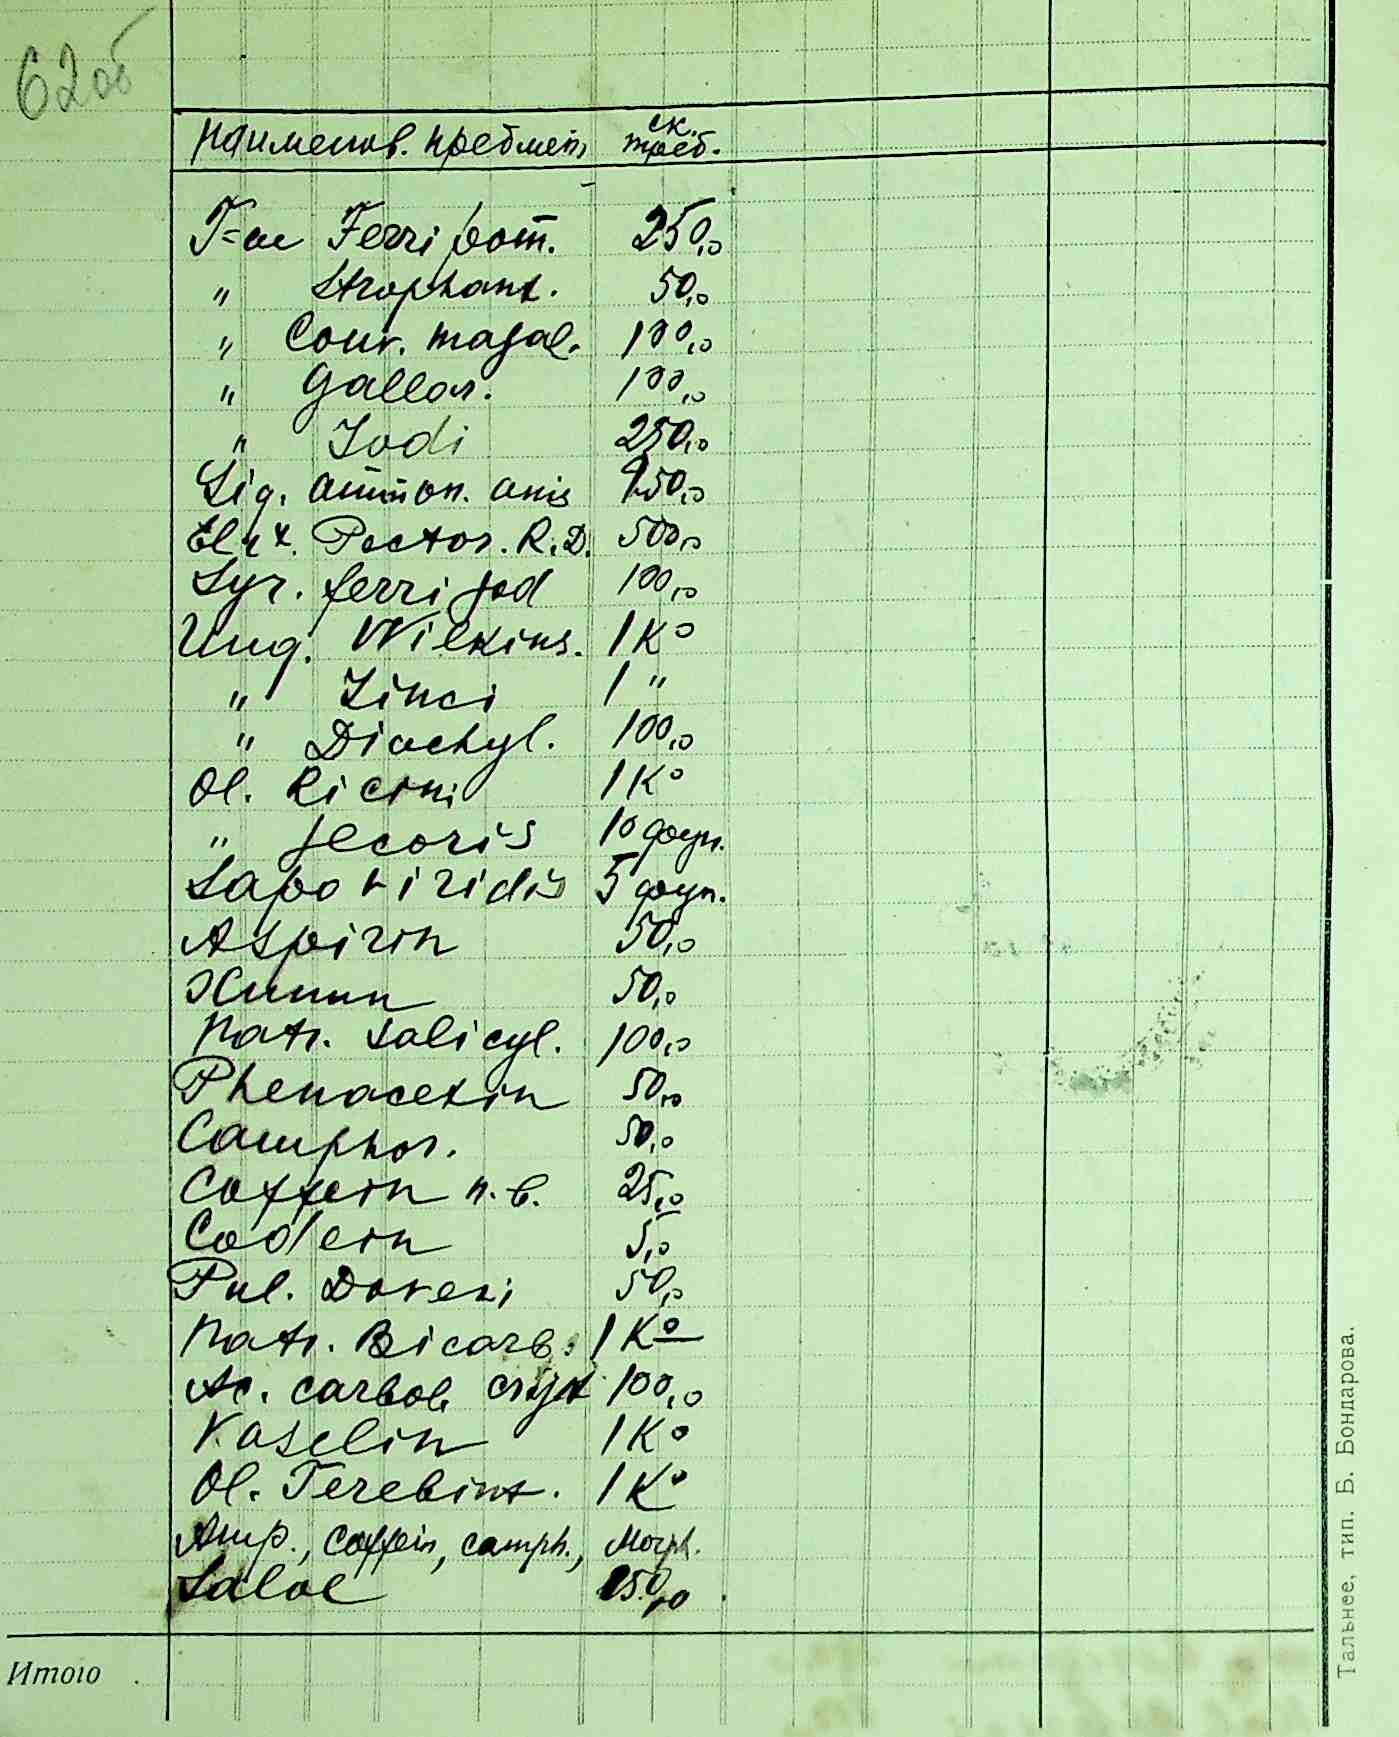 62об
наименов. предмет. ск. треб.
T-ae Ferri pom. 250,0
" Strophant. 50,0
" Conv. majal. 100,0
" Gallar. 100,0
" Jodi 250,0
Liq. ammon. anis 250,0
Elix. Pector. R.D. 500,0
Syr. ferri jod 100,0
Ung. Wilkins. 1 Ko
" Zinci 1 "
" Diachyl. 100,0
Ol. Ricini 1 Ko
" jecoris 10 фун.
Sapo viridis 5 фун.
Aspirin 50,0
Хинин 50,0
Natr. Salicyl. 100,0
Phenacetin 50,0
Camphor. 50,0
Coffein n.b. 25,0
Codein 5,0
Pul. Doveri 50,0
Natr. Bicarb. 1 Ko
Ac. carbol. cryst 100,0
Vaselin 1 Ko
Ol. Terebint. 1 Ko
Amp., coffein, camph., Morph.
Salol 150,0
Итого
Тальнее, тип. Б. Бондарова.